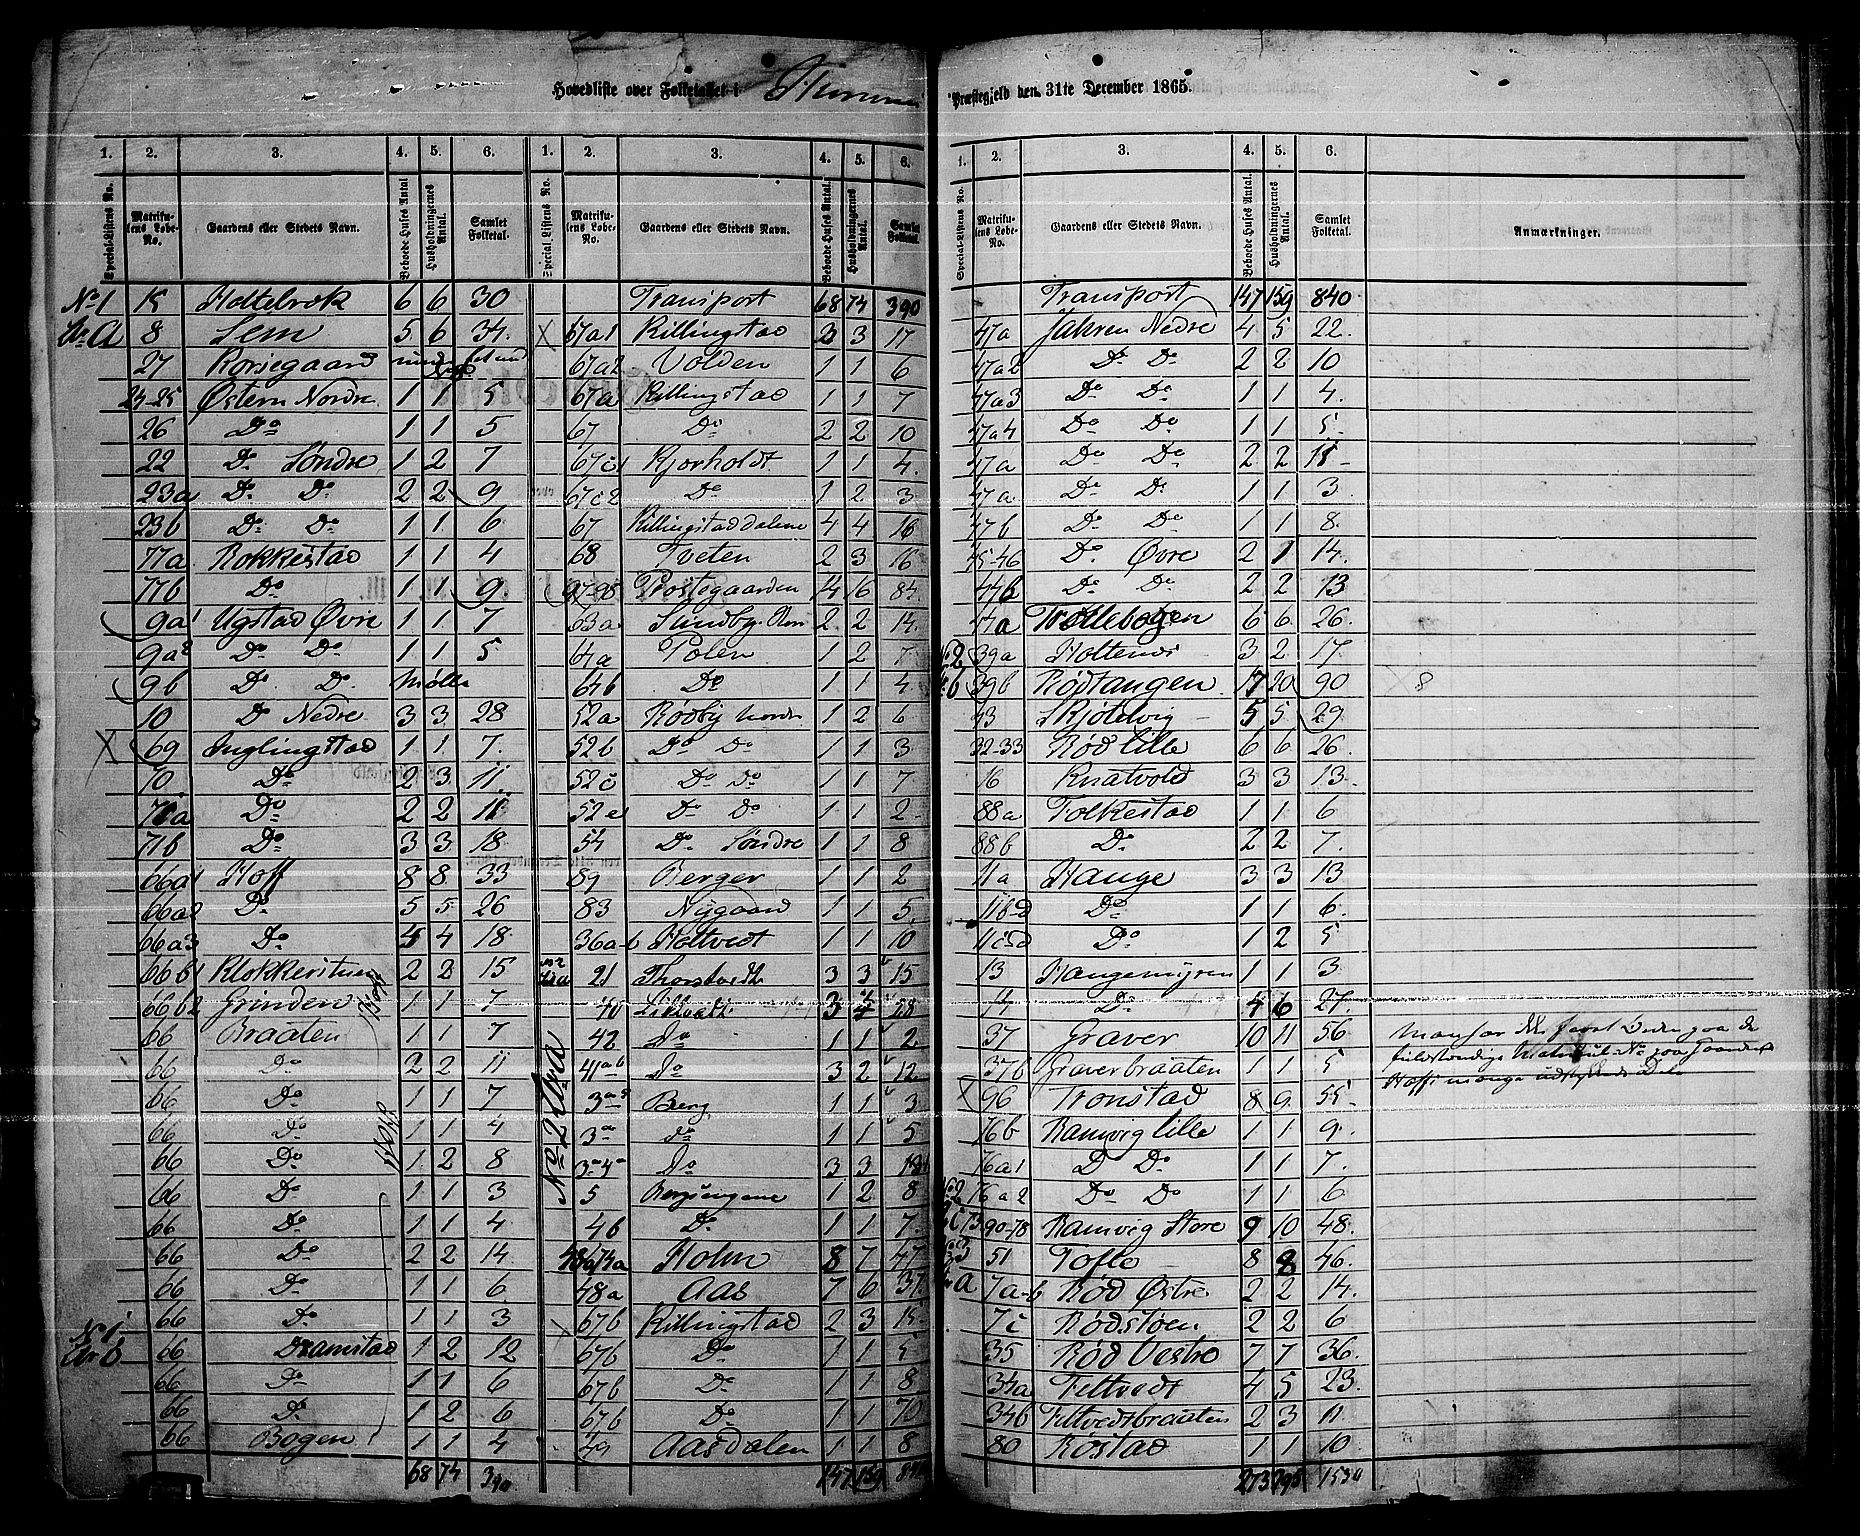 Hovedliste over Folketallet i Hurum
Præstegjeld den 31te December 1865.
1. 2. 3. 4. 5. 6.
Special-Listens No. Matrikulens Løbe-No. Gaardens eller Stedets Navn. Beboede Huses Antal Husholdningernes Antal. Samlet Folketal.
No 1 15 Holtebrok 6 6 30
Litr A 8 Sem 5 6 34.
27 Korsegaard
24-25 Østern Nordre 1 1 5
26 Do 1 1 5
22 Do Søndre 1 2 7
23a Do Do 2 2 9
23b Do Do 1 1 6
77a Rokkestad 1 1 4
77b Do 1 1 9
9a1 Ugstad Øvre 1 1 7
9a2 Do Do 1 1 5
9b Do Do Mølle
10 Do Nedre 3 3 28
X 69 Inglingstad 1 1 7.
70. Do 2 3 11
71a Do 2 2 11
71b Do 3 3 18
66a1 Hoff 8 8 33
66a2 Do 5 5 26
66a3 Do 4 4 18
66b1 Klokkerstuen 2 2 15
66b2 Grinden 1 1 7
66 Braaten 1 1 7
66 Do 2 2 11
66 Do 1 1 7
66 Do 1 1 4
66 Do 1 2 8
66 Do 1 1 3
66 Do 1 1 4
66 Do 2 2 14
66 Do 1 1 6
66 Do 1 1 3
No 1 Litr b 66 Dramstad 1 2 12
66 Do 1 1 6
66 Do 1 2 6
66 Bogen 1 1 4
68 74 390
1. 2. 3. 4. 5. 6.
Special-Listens No. Matrikulens Løbe-No. Gaardens eller Stedets Navn. Beboede Huses Antal. Husholdningernes Antal. Samlet Folketal.
Transport 68 74 390
X 67a1 Killingstad 3 3 17
67a2 Volden 1 1 6
67a Killingstad 1 1 7
67 Do 2 2 10
67c1 Kjorholdt 1 1 4.
67c2 Do 1 2 3
67 Killingstaddalene 4 4 16
68 Tveten 2 3 16
97-98 Prestegaarden 14 16 84
63a Sundby 2 2 14.
64a Polen 1 2 7
64b Do 1 1 4.
52a Rødby Nordre 1 2 6
52b Do Do 1 1 3
52c Do Do 1 1 7
52e Do Do 1 1 2
54 Do Søndre 1 1 8
89 Berger 1 1 2
83 Nygaard 1 1 5.
36a-b Holtvedt 1 1 10
21 Thorstvedt 3 3 15
40 Lilletvedt 3 4 28
42 Do 1 1 2
No 2 Litra 41ab Do 3 2 12
3 Berg 1 1 3
3a Do 1 1 5
3a4a Do 3 3
5 Bergsengene 1 2 8
4b Do 1 1 7
Holm 8 7 47
48a Aas 7 6 37
67b Killingstad 2 3 15
67b Do 1 1 5
67b Do 1 1 8
67b Do 1 1 10
49 Aasdalen 1 1 8
147 159 840
1. 2. 3. 4. 5. 6.
Special-Listens No. Matrikulens Løbe-No. Gaardens eller Stedets Navn. Beboede Huses Antal. Husholdningernes Antal. Samlet Folketal. Anmærkninger.
Transport 147 159 840
47a Jahren Nedre 4 5 22.
47a2 Do Do 2 2 10
47a3 Do Do 1 1 4.
47a4 Do Do 1 1 5
47a Do Do 2 2 11
47a Do Do 1 1 3
47b Do Do 1 1 8.
45-46 Do Øvre 2 1 14.
44b Do Do 2 2 13
44a Trollebogen 6 6 26.
39a Holtenes 3 2 17.
39b Rødtangen 17 20 90 8
43 Skjøtelvig 5 5 29
32-33 Rød lille 6 6 26.
16 Knatvold 3 3 13.
88a Folkestad 1 1 6
88b Do 2 2 7.
11a Hauge 3 3 13
11b-d Do 1 1 6.
11c Do 1 2 5
13 Haugemyren 1 1 3
14 Do 4 6 27.
37 Graver 10 11 56
37b Graverbraaten 1 1 5
X 96 Tronstad 8 9. 55
76b Ramvig lille 1 1 9.
76a1 Do Do 1 1 7.
76a2 Do Do 1 1 6
90-78 Ramvig Store 9 10 48.
51 Tofte 8 8 46.
7a-b Rød Østre 2 2 14.
7c Rødstøen 2 2 6
35 Rød Vestre 7 7 36.
34a Feltvedt 4 5 23.
34b Feltvedtbraaten 2 3 11
80 Røstad 1 1 10.
273 295 1534